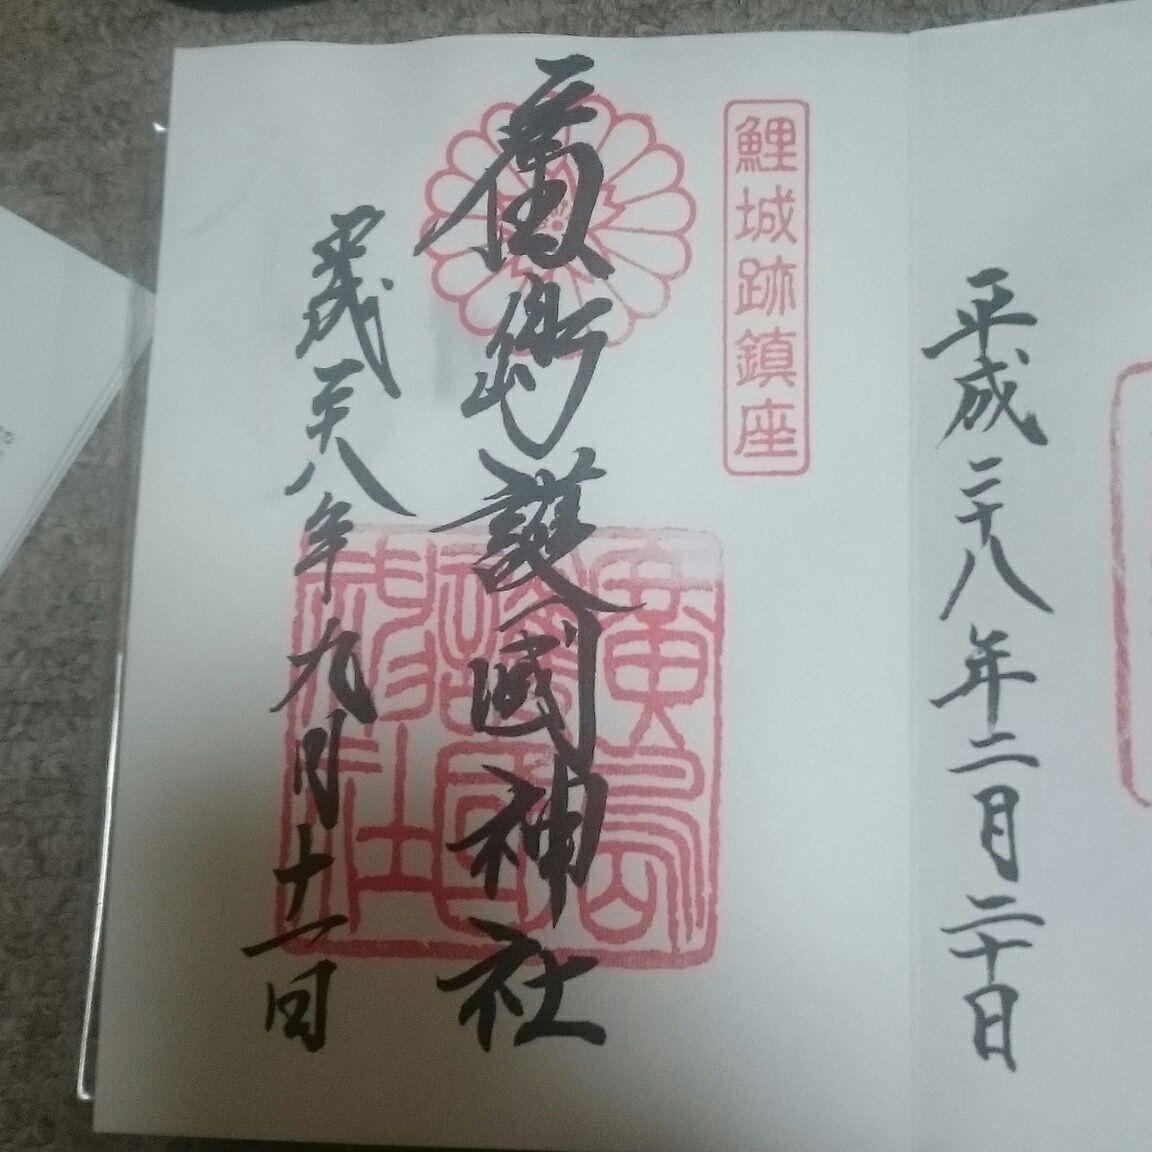 平成二十八年二月二十日
鯉城跡鎮座
廣島護國神社
廣島護國神社
平成二十八年九月十一日